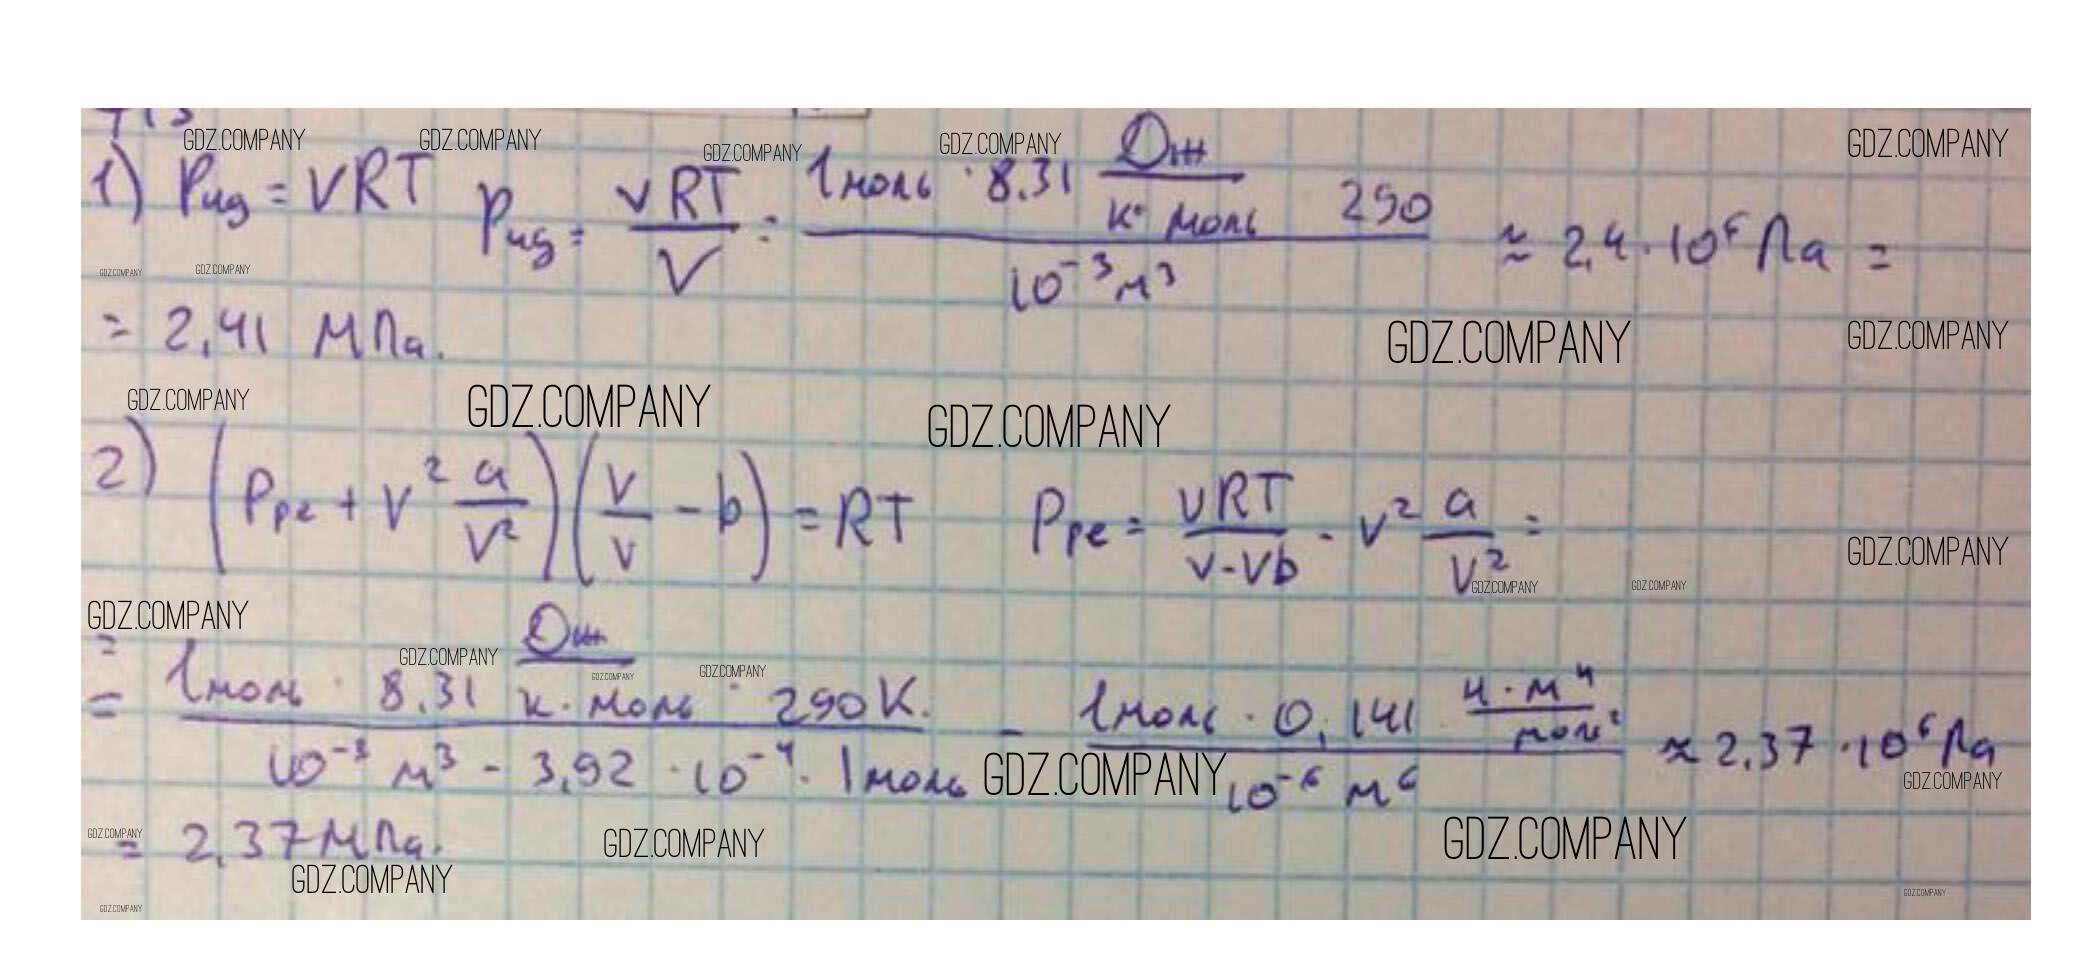 GDZ.COMPANY GDZ.COMPANY GDZ.COMPANY GDZ.COMPANY GDZ.COMPANY
1) Pид = νRT Pид = νRT/V = 1моль · 8.31 Дж/К·моль 290 / 10⁻³м³ ≈ 2,4·10⁶ Па =
GDZ.COMPANY GDZ.COMPANY
= 2,41 МПа. GDZ.COMPANY GDZ.COMPANY
GDZ.COMPANY GDZ.COMPANY GDZ.COMPANY
2) (Pре + ν² a/V²)(V/ν - b) = RT Pре = νRT/V-νb - ν² a/V² =
GDZ.COMPANY GDZ.COMPANY GDZ.COMPANY
GDZ.COMPANY GDZ.COMPANY GDZ.COMPANY GDZ.COMPANY
= 1моль · 8,31 Дж/К·моль · 290К. / 10⁻³ м³ - 3,92 · 10⁻⁴ · 1моль - 1моль · 0,141 Н·м⁴/моль² / 10⁻⁶ м⁶ ≈ 2,37·10⁶ Па
GDZ.COMPANY GDZ.COMPANY
= 2,37 МПа. GDZ.COMPANY GDZ.COMPANY GDZ.COMPANY
GDZ.COMPANY GDZ.COMPANY
GDZ.COMPANY